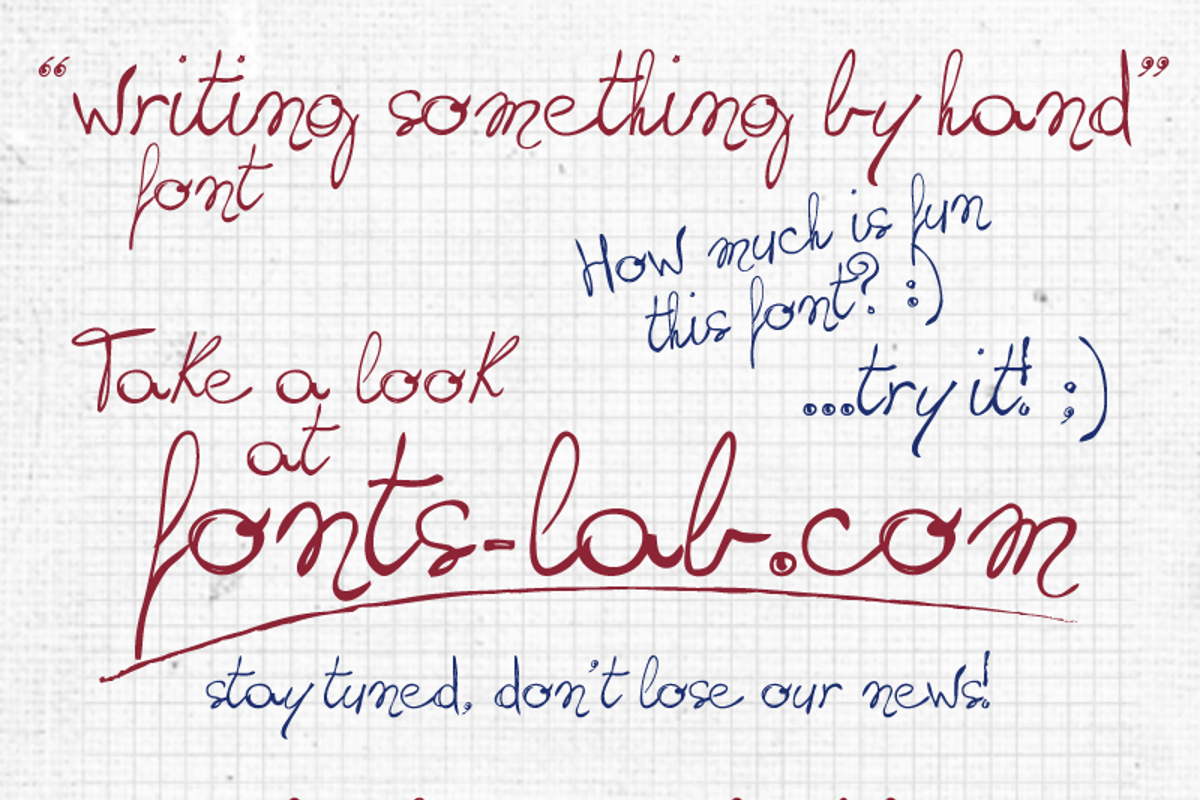 “Writing something by hand”
font
How much is fun
this font? :)
...try it! ;)
Take a look
at
fonts-lab.com
stay tuned, don't lose our news!